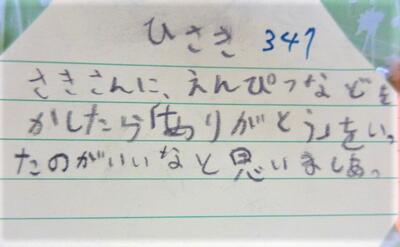 ひさき 347
さきさんに、えんぴつなどを
かしたら「ありがとう」をいっ
たのがいいなと思いました。